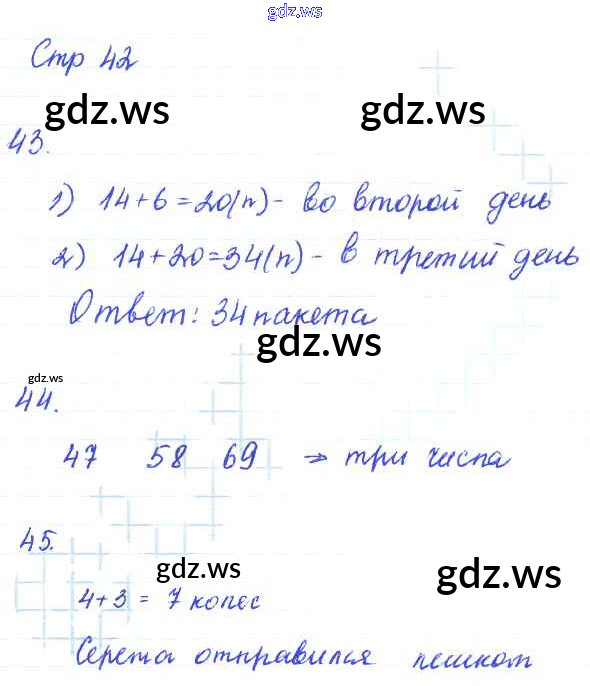 gdz.ws
Стр 42
gdz.ws gdz.ws
43.
1) 14+6=20(п)- во второй день
2) 14+20=34(п)- в третий день
Ответ: 34 пакета
gdz.ws
gdz.ws
44.
47 58 69 → три числа
45.
gdz.ws gdz.ws
4+3 = 7 колес
Сережа отправился пешком